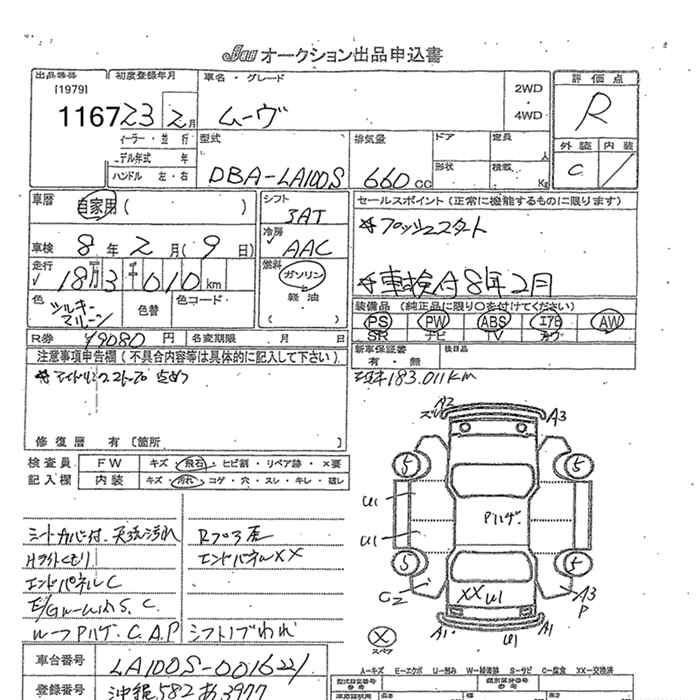 JAU オークション出品申込書
出品番号 初度登録年月 車名・グレード 評価点
[1979]
1167 23 2月 ムーヴ 2WD ・ 4WD R
ィーラー・並行 型式 排気量 ドア 定員 外装 内装
デル年式 年 形状 積載 人
ハンドル 左・右 DBA-LA100S 660cc Kg C /
車暦 自家用 ( ) シフト 3AT セールスポイント(正常に機能するものに限ります)
冷房 AAC ☆プッシュスタート
車検 8年2月(9日)
走行 18万3千010km 燃料 ガソリン ☆車検付8年2月
色 色替 色コード 軽油
シルキーマルーン ( ) 装備品(純正品に限り○を付けてください)
PS PW ABS エアB AW
R券 ¥9080円 名変期限 月 日 SR ナビ TV カワ
注意事項申告欄(不具合内容等は具体的に記入して下さい) 新車保証書 後日品
有・無
☆アイドリングストップ 点めつ 183.011KM
修復歴 有〔箇所 〕
検査員 FW キズ・飛石・ヒビ割・リペア跡・×要
記入欄 内装 キズ・汚れ・コゲ・穴・スレ・キレ・破レ
シートカバー付.天張汚れ Rフロア歪
Hライトくもり エンドパネルXX
エンドパネルC
ルーフPハゲ.C.A.P シフトノブわれ
A2 A3
5 5
U1
U1 Pハゲ
5 5
C2 XX U1 A3 P
A1 U1 A1
X スペア
A=キズ E=エクボ U=凹み W=補修跡 S=サビ C=腐食 XX=交換済
車台番号 LA100S-0016221
登録番号 沖縄582あ3977